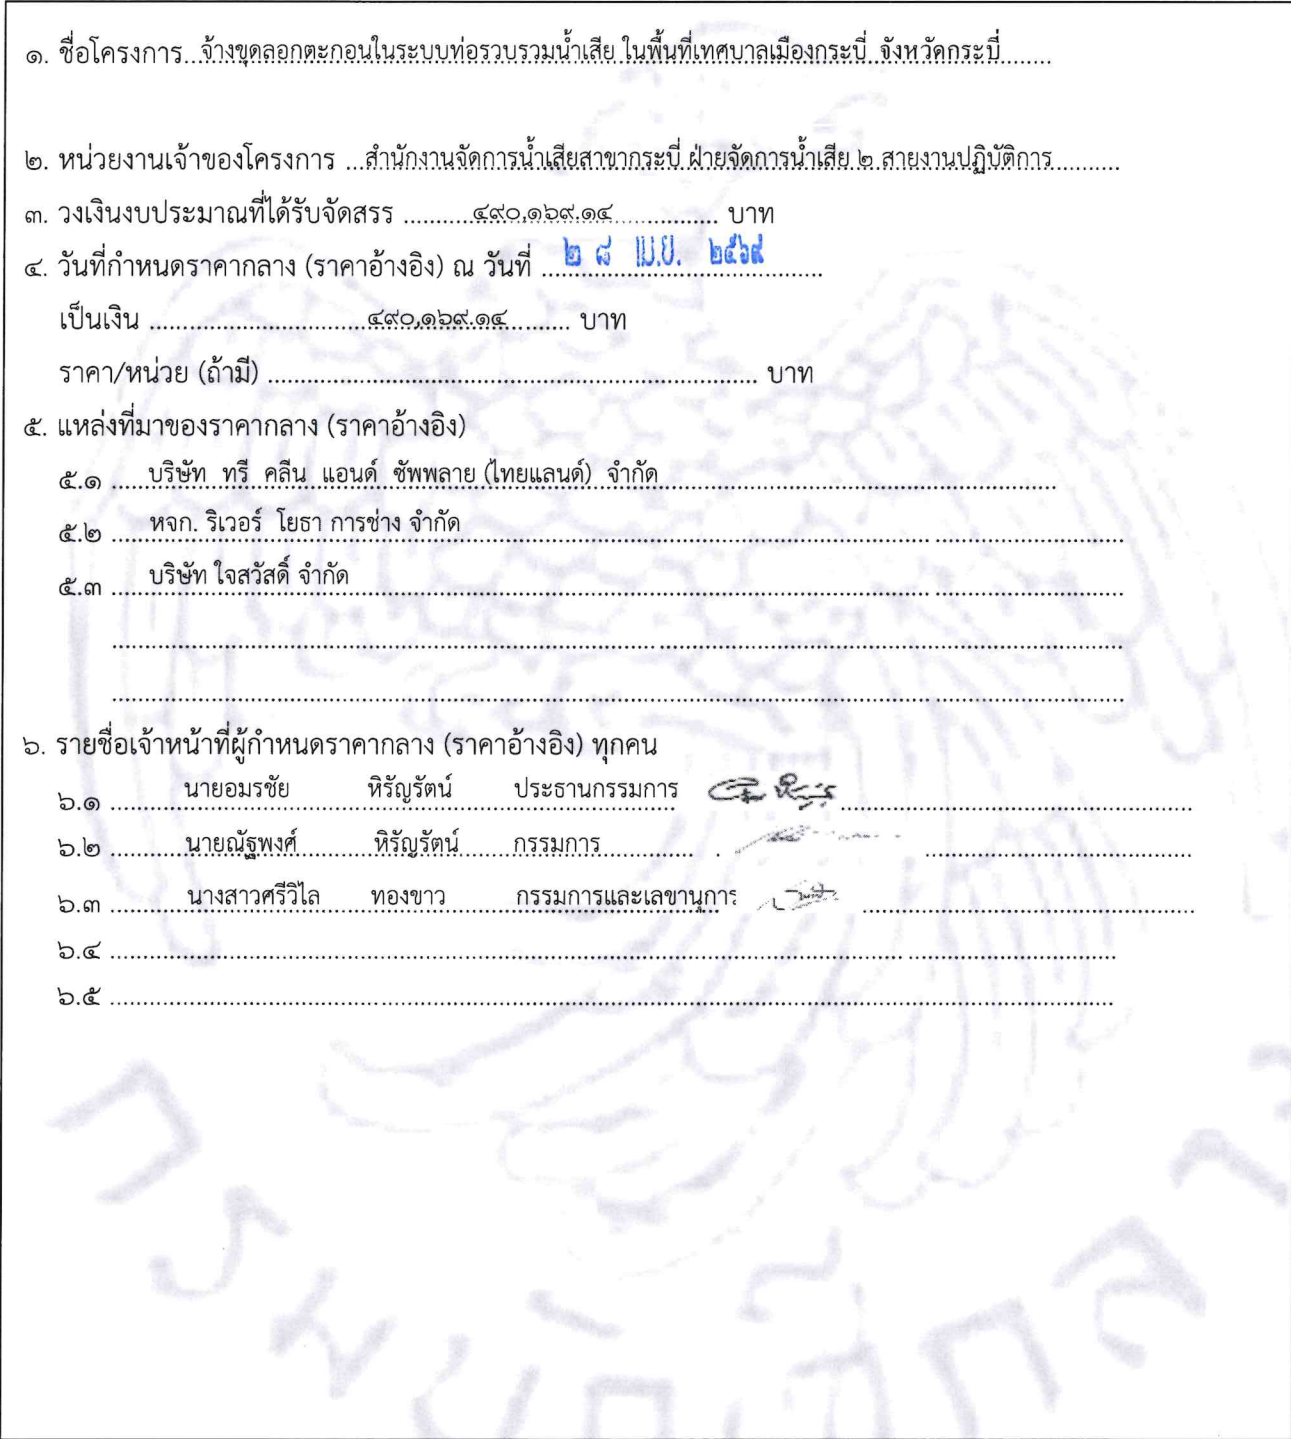 ๑. ชื่อโครงการ...จ้างขุดลอกตะกอนในระบบท่อรวบรวมน้ำเสีย ในพื้นที่เทศบาลเมืองกระบี่ จังหวัดกระบี่........
๒. หน่วยงานเจ้าของโครงการ ...สำนักงานจัดการน้ำเสียสาขากระบี่ ฝ่ายจัดการน้ำเสีย ๒ สายงานปฏิบัติการ..........
๓. วงเงินงบประมาณที่ได้รับจัดสรร ..........๔๙๐,๑๖๙.๑๔............... บาท
๔. วันที่กำหนดราคากลาง (ราคาอ้างอิง) ณ วันที่ ...๒ ๘ เม.ย. ๒๕๖๙.........
เป็นเงิน .................................๔๙๐,๑๖๙.๑๔.......... บาท
ราคา/หน่วย (ถ้ามี) .......................................................................... บาท
๕. แหล่งที่มาของราคากลาง (ราคาอ้างอิง)
๕.๑ ......บริษัท ทรี คลีน แอนด์ ซัพพลาย (ไทยแลนด์) จำกัด............................................................
๕.๒ ......หจก. ริเวอร์ โยธา การช่าง จำกัด............................................................
๕.๓ ......บริษัท ใจสวัสดิ์ จำกัด............................................................
............................................................
............................................................
๖. รายชื่อเจ้าหน้าที่ผู้กำหนดราคากลาง (ราคาอ้างอิง) ทุกคน
๖.๑ ...........นายอมรชัย หิรัญรัตน์ ประธานกรรมการ ............................................................
๖.๒ ...........นายณัฐพงศ์ หิรัญรัตน์ กรรมการ ............................................................
๖.๓ ...........นางสาวศรีวิไล ทองขาว กรรมการและเลขานุการ ............................................................
๖.๔ ............................................................
๖.๕ ............................................................